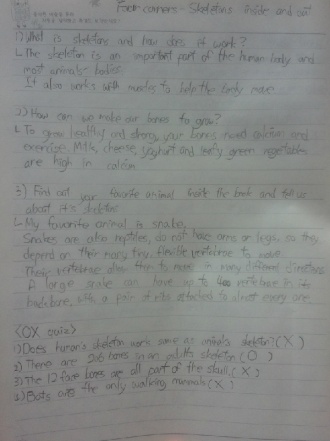 Four corners - Skeletons inside and out
1) What is skeletons and how does it work?
The skeleton is an important part of the human body and
most animals bodies.
It also works with muscles to help the body move.
2) How can we make our bones to grow?
To grow healthy and strong, your bones need calcium and
exercise. Milk, cheese, yoghurt and leafy green vegetables
are high in calcium
3) Find out your favorite animal inside the book and tell us
about it's skeleton
My favorite animal is snake.
Snakes are also reptiles, do not have arms or legs, so they
depend on their many tiny, flexible vertebrae to move.
These vertebrae allow them to move in many different directions
A large snake can have up to 400 vertebrae in its
backbone, with a pair of ribs attached to almost every one.
<OX quiz>
1) Does human's skeleton work same as animal's skeleton? (X)
2) There are 206 bones in an adult's skeleton (O)
3) The 12 face bones are all part of the skull. (X)
4) Bats are the only walking mammals (X)